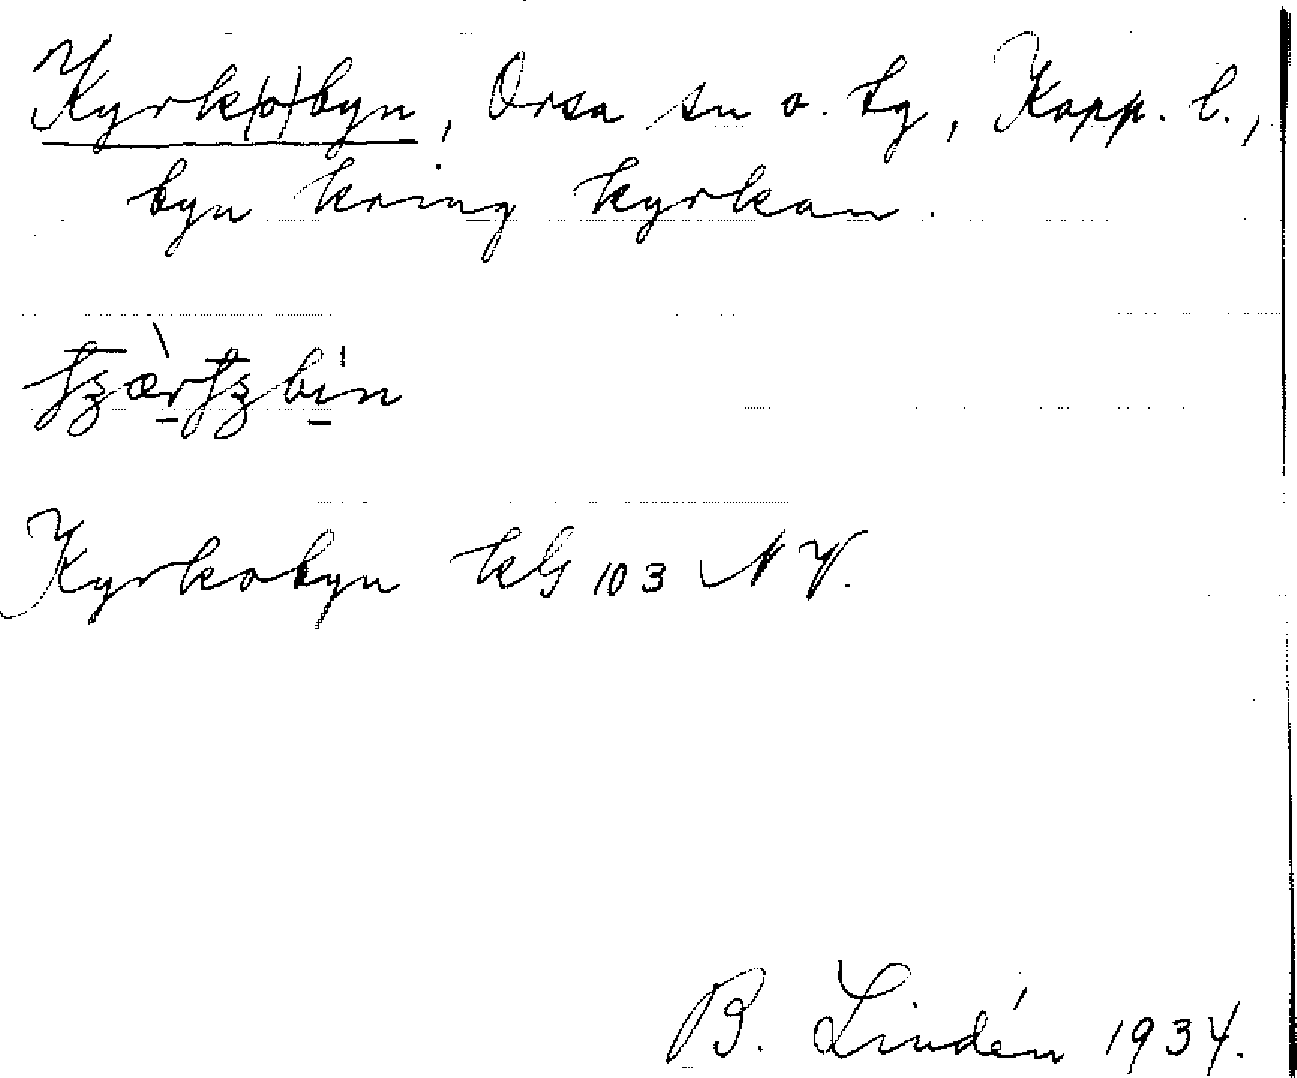 Kyrk(o)byn, Orsa sn o. tg, Kopp. l.,
byn kring kyrkan.
Kyrkobyn kG 103 NV.
B. Lindén 1934.